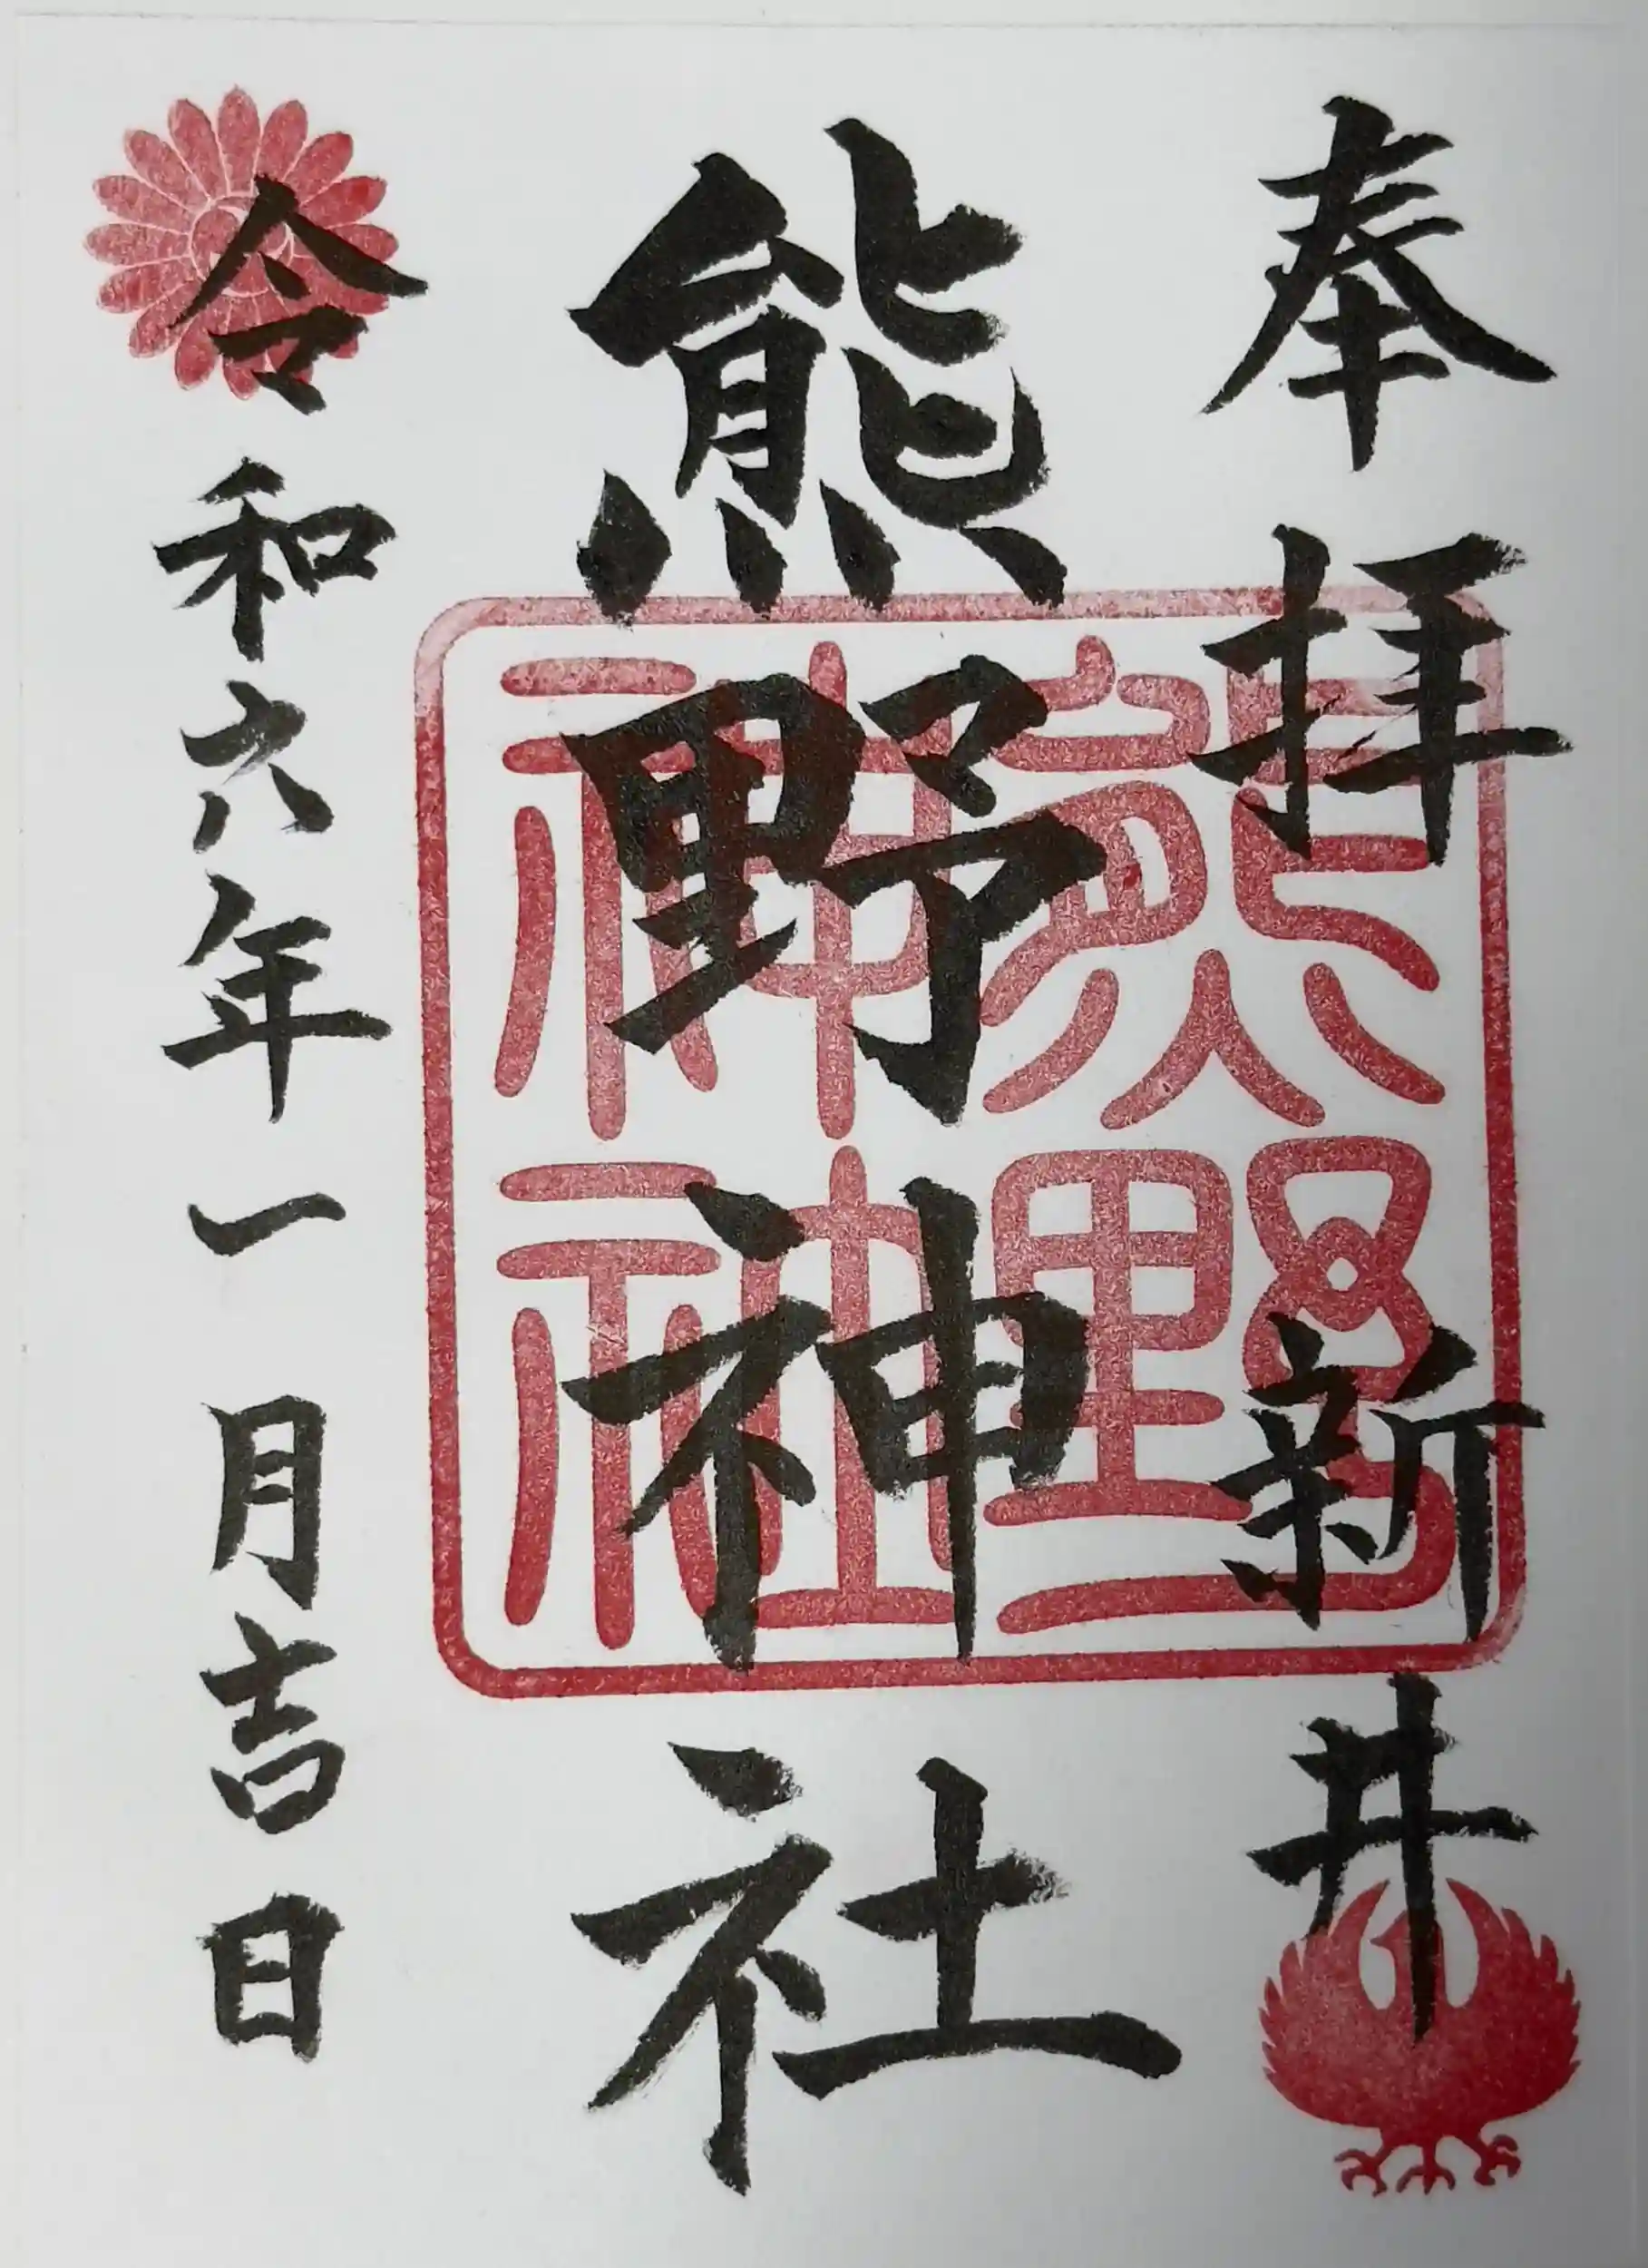 奉拝 新井
熊野神社
熊野神社
令和六年一月吉日